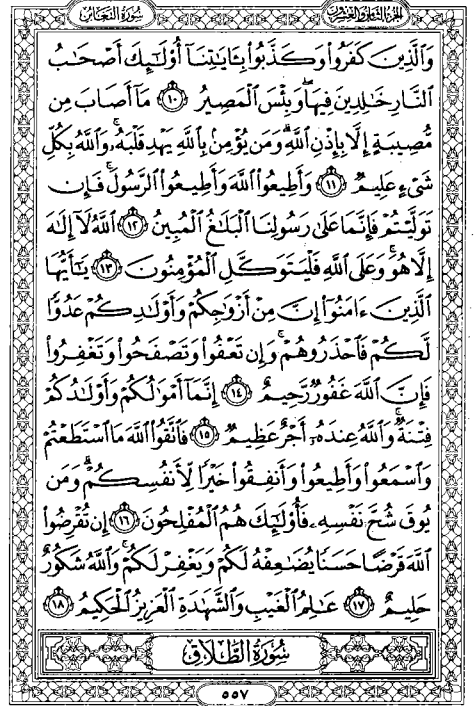 سُورَةُ التَّغَابُنِ
الجزء الثامن والعشرون
وَٱلَّذِينَ كَفَرُوا۟ وَكَذَّبُوا۟ بِـَٔايَـٰتِنَآ أُو۟لَـٰٓئِكَ أَصْحَـٰبُ
ٱلنَّارِ خَـٰلِدِينَ فِيهَا ۖ وَبِئْسَ ٱلْمَصِيرُ ١٠ مَآ أَصَابَ مِن
مُّصِيبَةٍ إِلَّا بِإِذْنِ ٱللَّهِ ۗ وَمَن يُؤْمِنۢ بِٱللَّهِ يَهْدِ قَلْبَهُۥ ۚ وَٱللَّهُ بِكُلِّ
شَىْءٍ عَلِيمٌ ١١ وَأَطِيعُوا۟ ٱللَّهَ وَأَطِيعُوا۟ ٱلرَّسُولَ ۚ فَإِن
تَوَلَّيْتُمْ فَإِنَّمَا عَلَىٰ رَسُولِنَا ٱلْبَلَـٰغُ ٱلْمُبِينُ ١٢ ٱللَّهُ لَآ إِلَـٰهَ
إِلَّا هُوَ ۚ وَعَلَى ٱللَّهِ فَلْيَتَوَكَّلِ ٱلْمُؤْمِنُونَ ١٣ يَـٰٓأَيُّهَا
ٱلَّذِينَ ءَامَنُوٓا۟ إِنَّ مِنْ أَزْوَٰجِكُمْ وَأَوْلَـٰدِكُمْ عَدُوًّا
لَّكُمْ فَٱحْذَرُوهُمْ ۚ وَإِن تَعْفُوا۟ وَتَصْفَحُوا۟ وَتَغْفِرُوا۟
فَإِنَّ ٱللَّهَ غَفُورٌ رَّحِيمٌ ١٤ إِنَّمَآ أَمْوَٰلُكُمْ وَأَوْلَـٰدُكُمْ
فِتْنَةٌ ۚ وَٱللَّهُ عِندَهُۥٓ أَجْرٌ عَظِيمٌ ١٥ فَٱتَّقُوا۟ ٱللَّهَ مَا ٱسْتَطَعْتُمْ
وَٱسْمَعُوا۟ وَأَطِيعُوا۟ وَأَنفِقُوا۟ خَيْرًا لِّأَنفُسِكُمْ ۗ وَمَن
يُوقَ شُحَّ نَفْسِهِۦ فَأُو۟لَـٰٓئِكَ هُمُ ٱلْمُفْلِحُونَ ١٦ إِن تُقْرِضُوا۟
ٱللَّهَ قَرْضًا حَسَنًا يُضَـٰعِفْهُ لَكُمْ وَيَغْفِرْ لَكُمْ ۚ وَٱللَّهُ شَكُورٌ
حَلِيمٌ ١٧ عَـٰلِمُ ٱلْغَيْبِ وَٱلشَّهَـٰدَةِ ٱلْعَزِيزُ ٱلْحَكِيمُ ١٨
سُورَةُ الطَّلَاقِ
٥٥٧